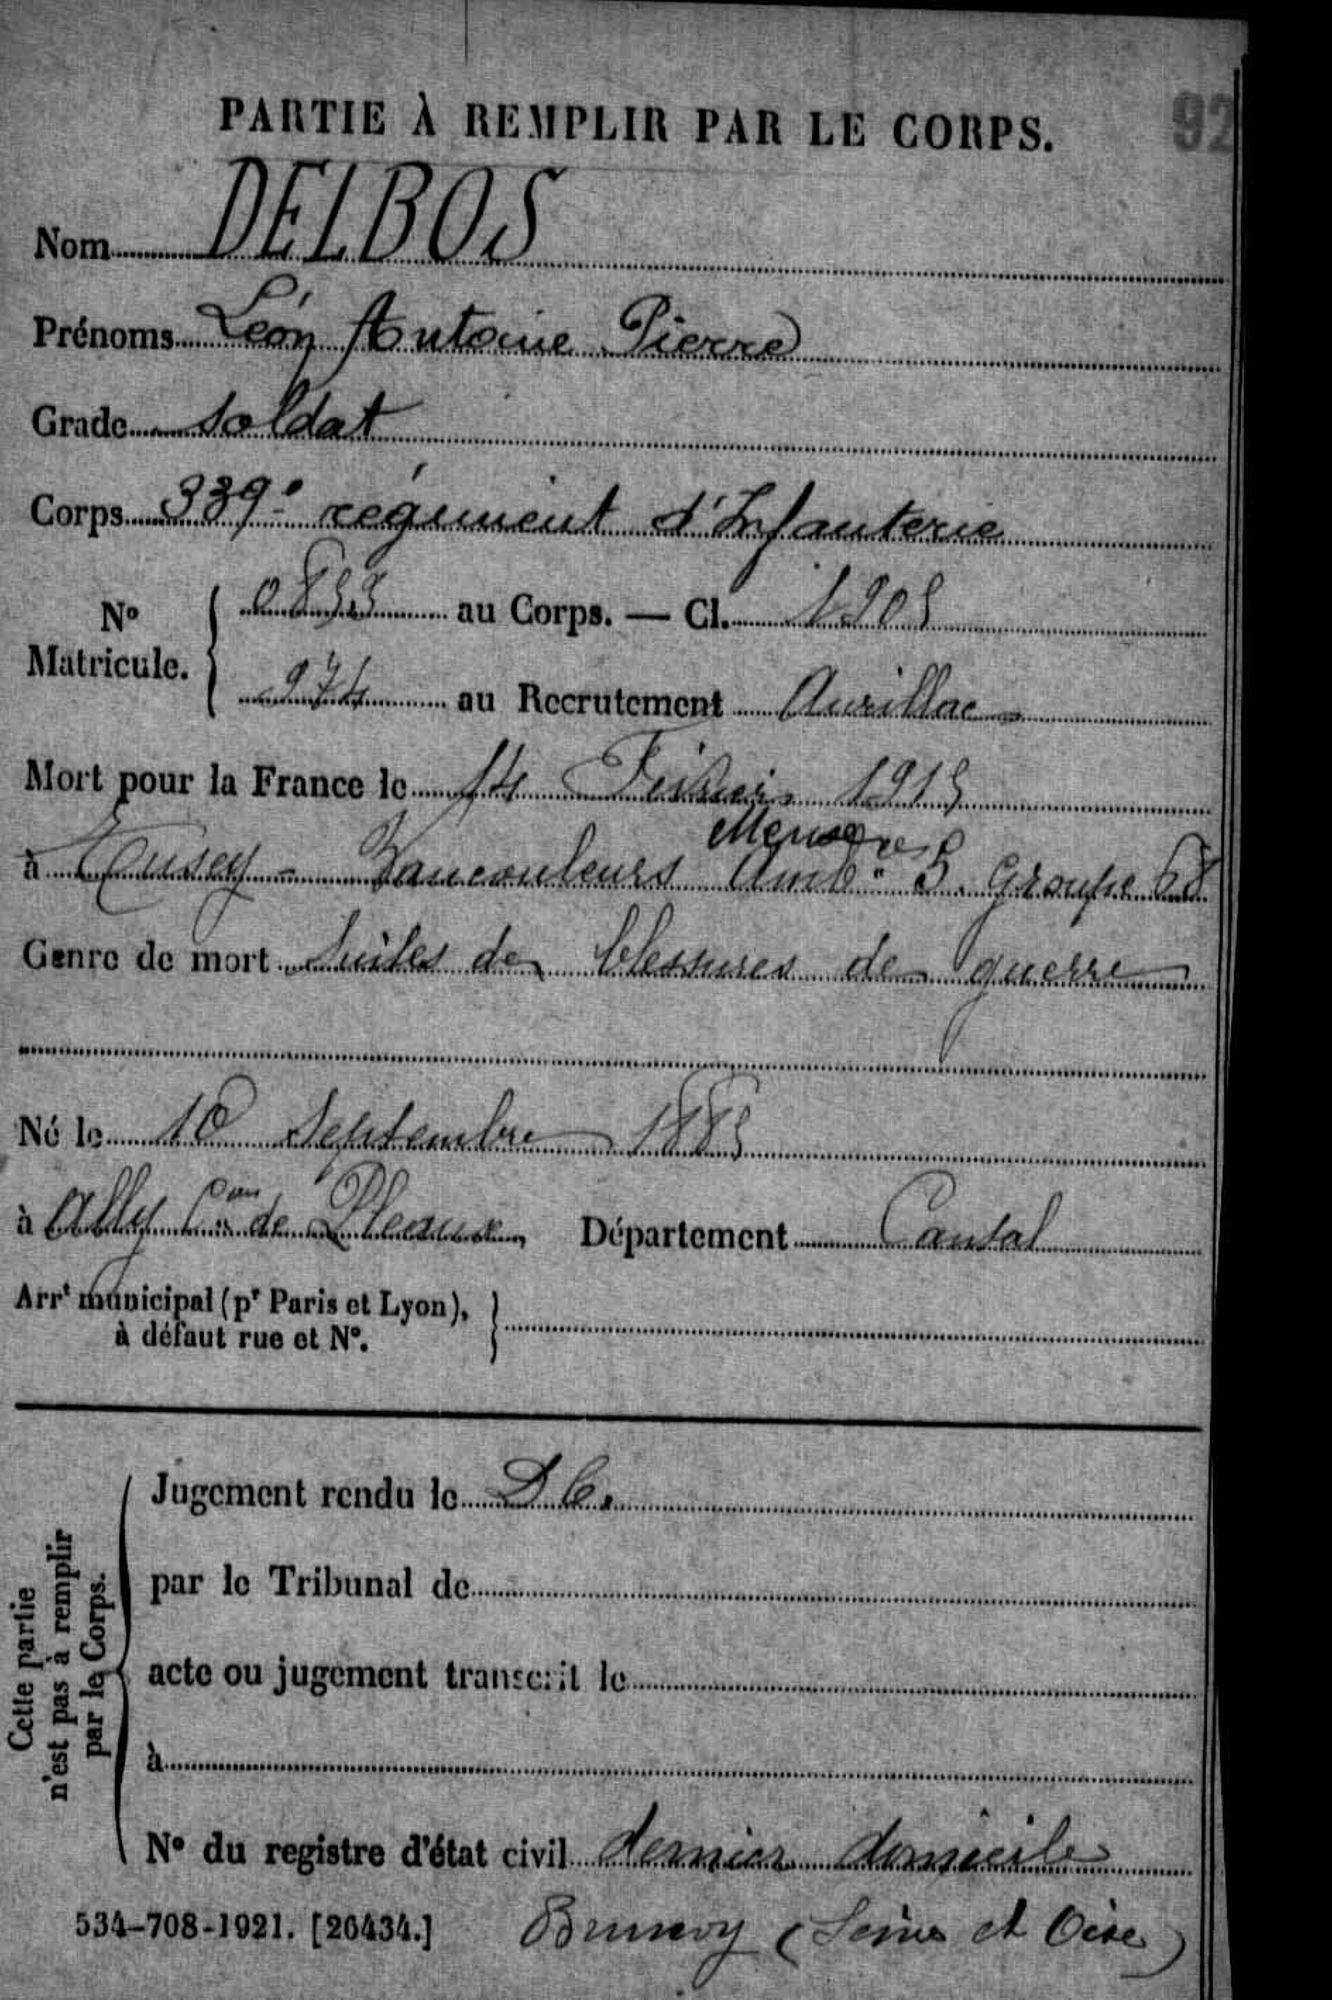 PARTIE À REMPLIR PAR LE CORPS.
92
Nom DELBOS
Prénoms Léon Antoine Pierre
Grade soldat
Corps 339e régiment d'Infanterie
No Matricule. 0853 au Corps. — Cl. 1905
974 au Recrutement Aurillac
Mort pour la France le 14 Février 1915
Meuse
à Tusey - Vaucouleurs Amb. 5 Groupe 68
Genre de mort Suites de blessures de guerre
Né le 10 Septembre 1885
à Ally Con de Pleaux, Département Cantal
Arrt municipal (pr Paris et Lyon),
à défaut rue et No.
Cette partie
n'est pas à remplir
par le Corps.
Jugement rendu le D C.
par le Tribunal de
acte ou jugement transcrit le
à
No du registre d'état civil dernier domicile
534-708-1921. [26434.] Brunoy (Seine et Oise)